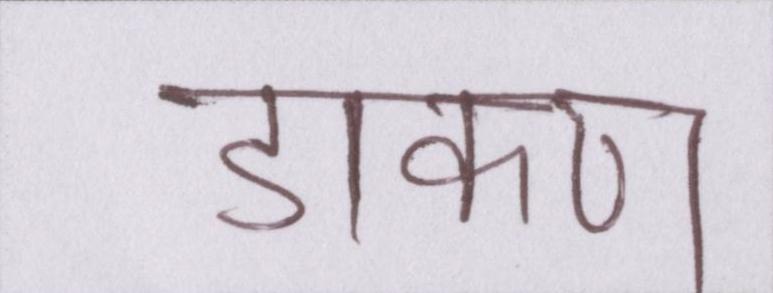 डाकण